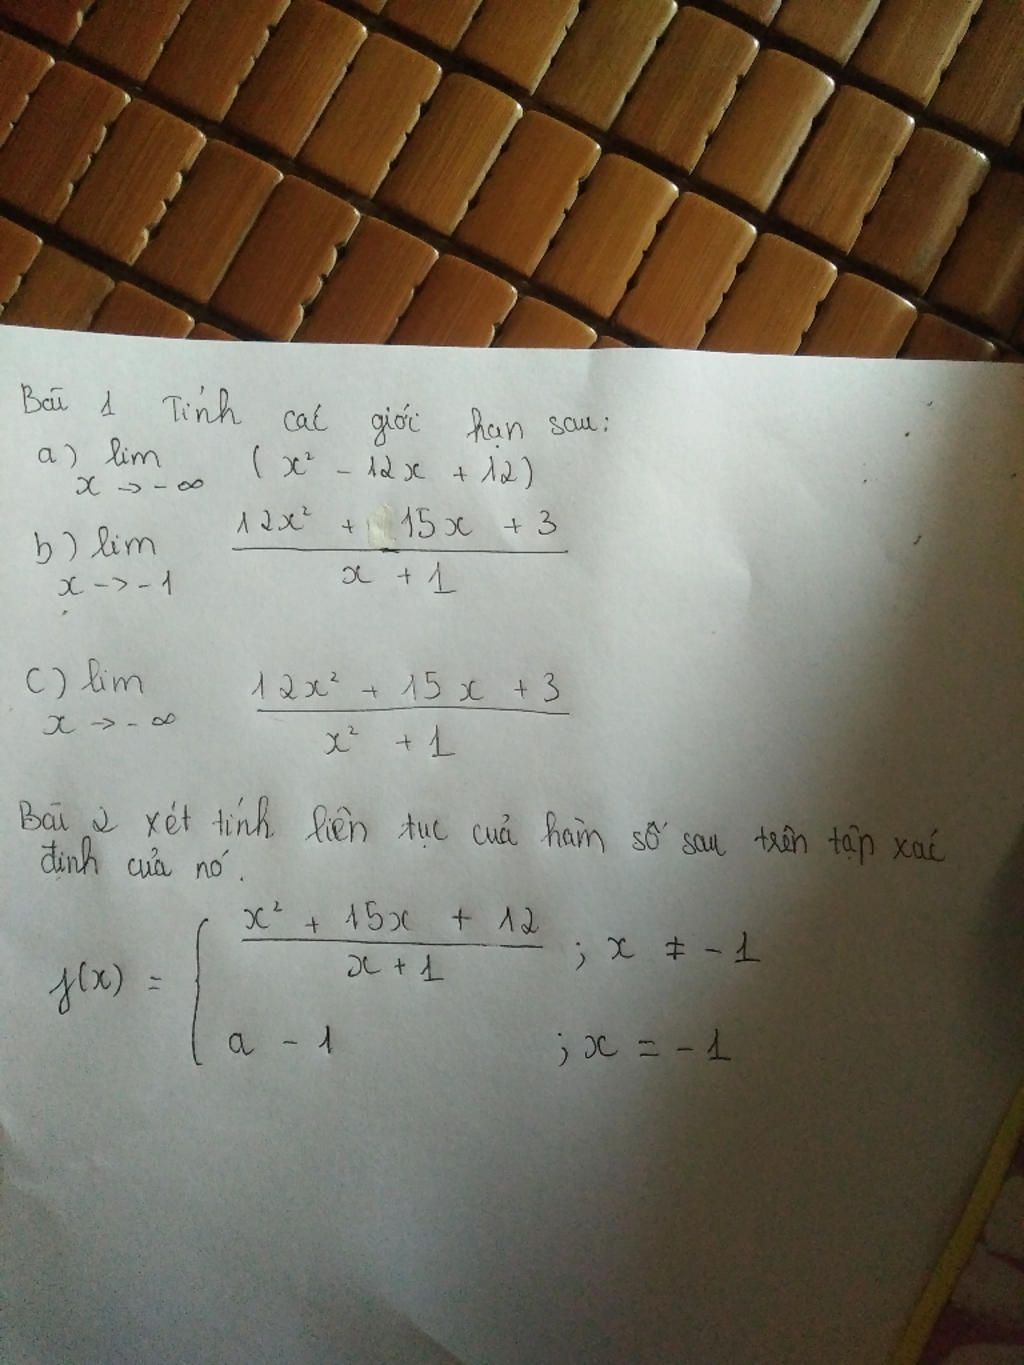 Bài 1 Tính các giới hạn sau:
a) lim x → -∞ (x² - 12x + 12)
b) lim x → -1 (12x² + 15x + 3) / (x + 1)
c) lim x → -∞ (12x² + 15x + 3) / (x² + 1)
Bài 2 xét tính liên tục của hàm số sau trên tập xác
định của nó.
f(x) = { (x² + 15x + 12) / (x + 1) ; x ≠ -1
a - 1 ; x = -1